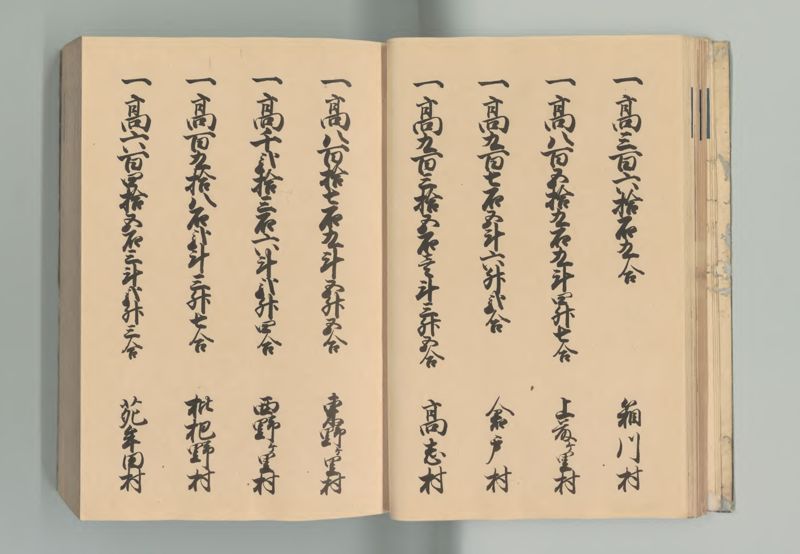 一高三百六拾石九合 箱川村
一高八百五拾九石九斗四升七合 上蔵ヶ里村
一高九百七石五斗六升弐合 倉戸村
一高九百三拾五石壱斗三升五合 高志村
一高八百拾七石九斗五升五合 東野ヶ里村
一高千弐拾三石六斗弐升四合 西野ヶ里村
一高百九拾八石弐斗三升七合 枇杷野村
一高六百四拾五石三斗弐升三合 苑牟田村